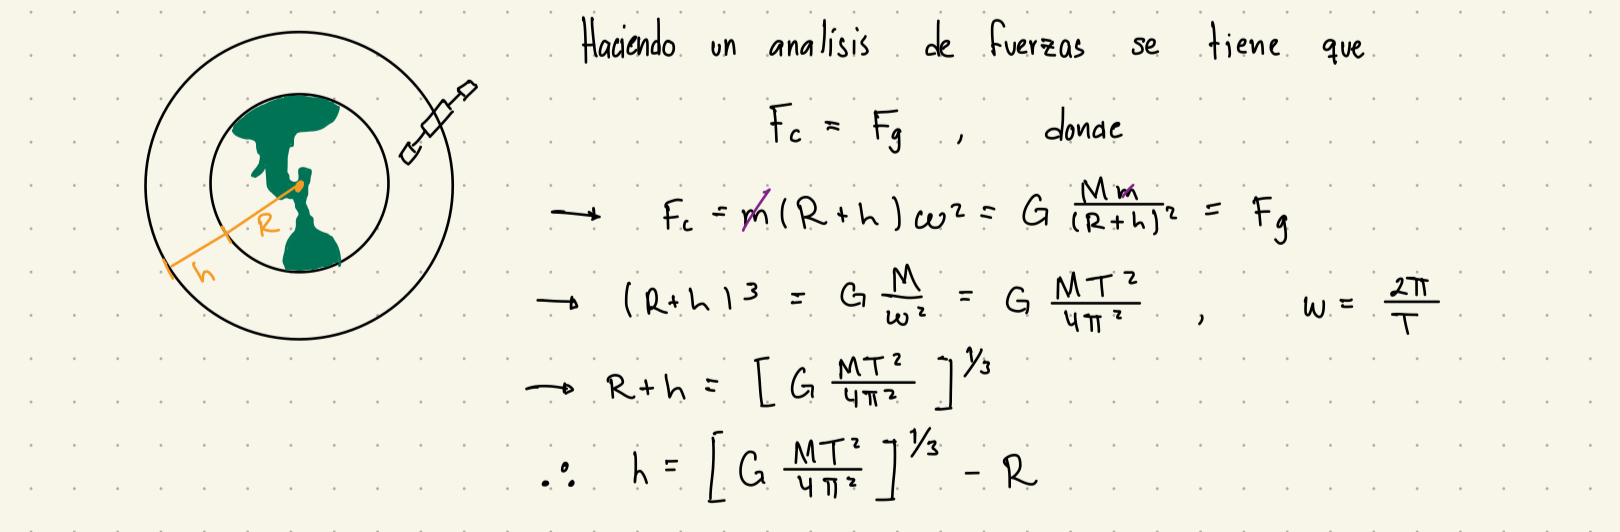 Haciendo un analisis de fuerzas se tiene que
Fc = Fg , donde
→ Fc = m(R+h)ω² = G Mm/(R+h)² = Fg
→ (R+h)³ = G M/ω² = G MT²/4π² , ω = 2π/T
→ R+h = [G MT²/4π²]^1/3
∴ h = [G MT²/4π²]^1/3 - R
R
h